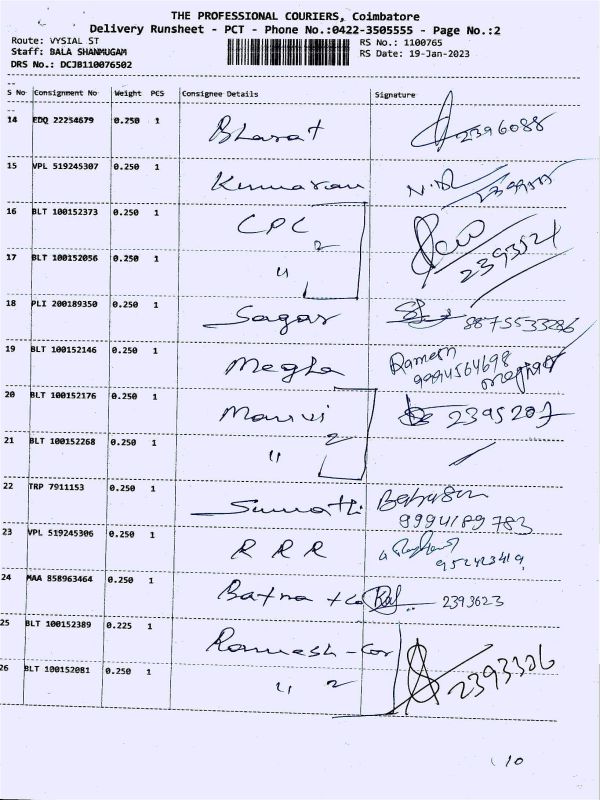 THE PROFESSIONAL COURIERS, Coimbatore
Delivery Runsheet - PCT - Phone No.:0422-3505555 - Page No.:2
Route: VYSIAL ST RS No.: 1100765
Staff: BALA SHANMUGAM RS Date: 19-Jan-2023
DRS No.: DCJB110076502
S No Consignment No Weight PCS Consignee Details Signature
14 EDQ 22254679 0.250 1 Bharat 2396088
15 VPL 519245307 0.250 1 Kumaran
16 BLT 100152373 0.250 1 CPC 2 2393521
17 BLT 100152056 0.250 1 "
18 PLI 200189350 0.250 1 Sagar 8875533286
19 BLT 100152146 0.250 1 Megha Ramesh
9994564698
20 BLT 100152176 0.250 1 2 2395207
21 BLT 100152268 0.250 1 "
22 TRP 7911153 0.250 1 Sumathi
9994189783
23 VPL 519245306 0.250 1 R R R
24 MAA 858963464 0.250 1 Batna + Co 2393623
25 BLT 100152389 0.225 1 Ramesh - Cor
26 BLT 100152081 0.250 1 " 2 2393326
10